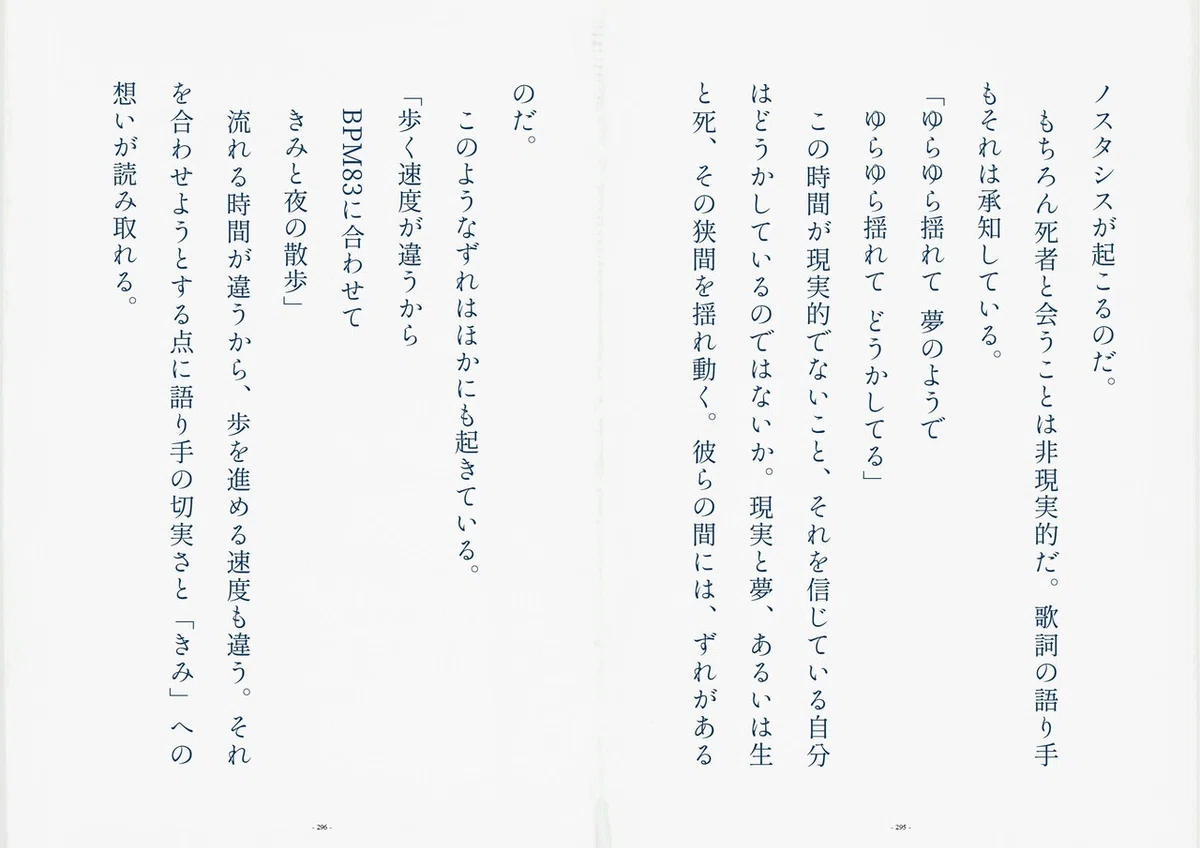 ノスタシスが起こるのだ。
もちろん死者と会うことは非現実的だ。歌詞の語り手
もそれは承知している。
「ゆらゆら揺れて 夢のようで
ゆらゆら揺れて どうかしてる」
この時間が現実的でないこと、それを信じている自分
はどうかしているのではないか。現実と夢、あるいは生
と死、その狭間を揺れ動く。彼らの間には、ずれがある
- 295 -
のだ。
このようなずれはほかにも起きている。
「歩く速度が違うから
BPM83に合わせて
きみと夜の散歩」
流れる時間が違うから、歩を進める速度も違う。それ
を合わせようとする点に語り手の切実さと「きみ」への
想いが読み取れる。
- 296 -